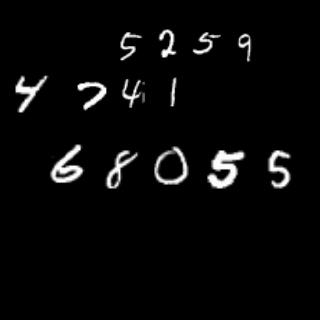 5 2 5 9
4 7 4 1
6 8 0 5 5